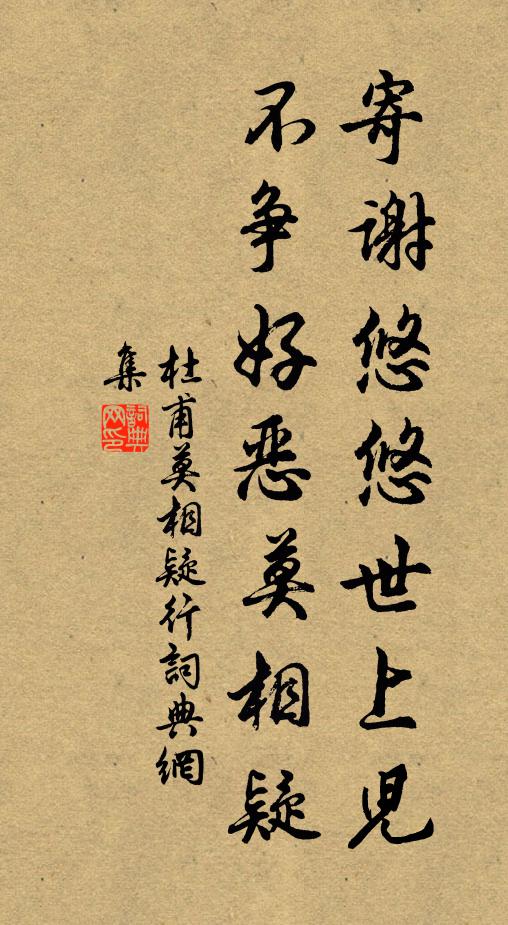 寄谢悠悠世上児
不争好恶莫相疑
杜甫莫相疑行詞典網
集
詞典网印